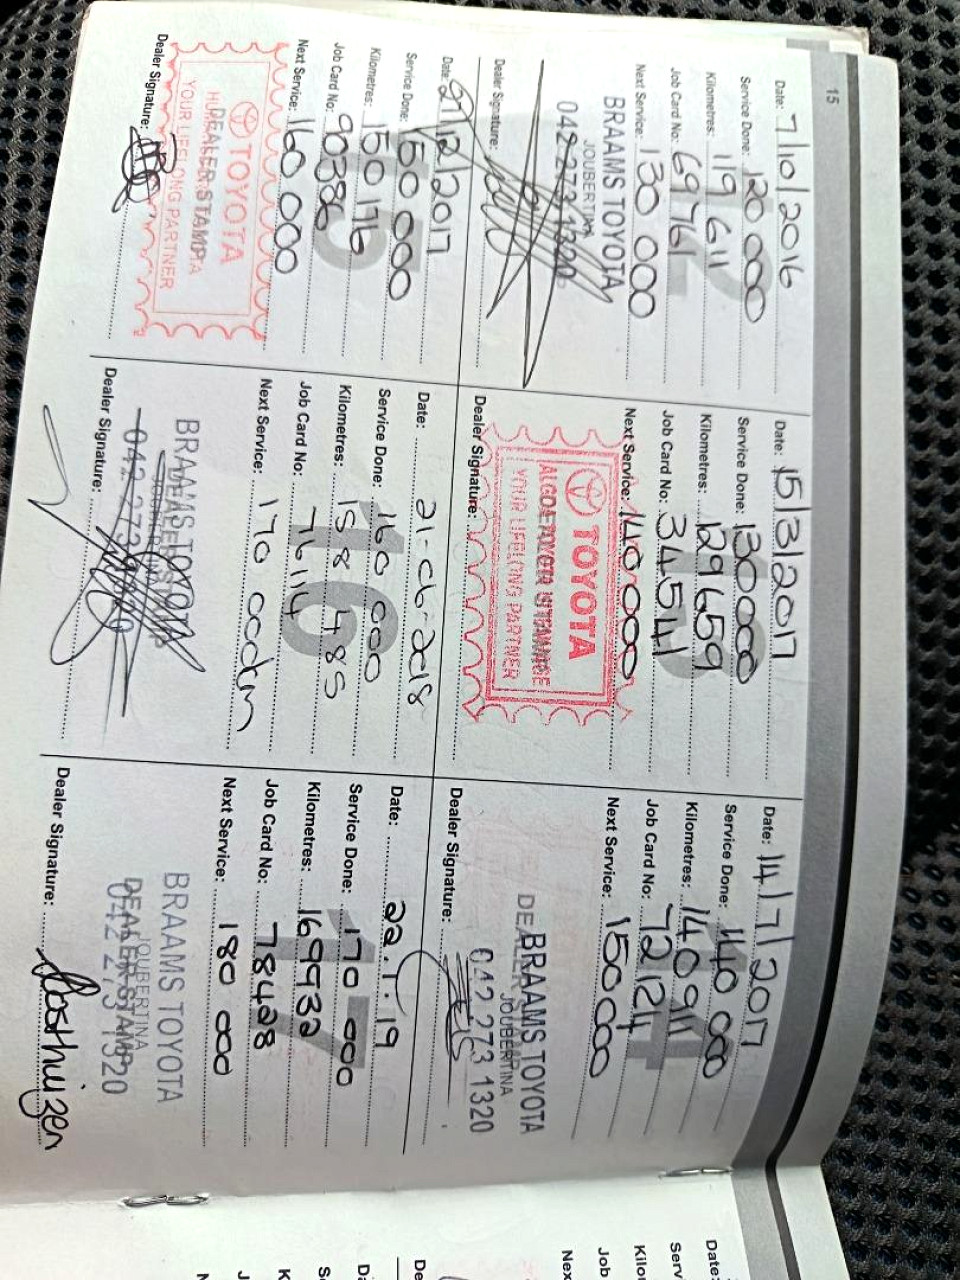 15
Date: 7/10/2016
Service Done: 120 000
Kilometres: 119 611
Job Card No: 69761
Next Service: 130 000
BRAAMS TOYOTA
JOUBERTINA
042-273 1320
Dealer Signature:
Date: 15/3/2017
Service Done: 130000
Kilometres: 129659
Job Card No: 34541
Next Service: 140 000
TOYOTA
YOUR LIFELONG PARTNER
Dealer Signature:
Date: 14/7/2017
Service Done: 140 000
Kilometres: 140 911
Job Card No: 72124
Next Service: 150 000
BRAAMS TOYOTA
JOUBERTINA
042 273 1320
Dealer Signature:
15
Date: 9/12/2017
Service Done: 150 000
Kilometres: 150 176
Job Card No: 90386
Next Service: 160 000
TOYOTA
DEALER STAMP
YOUR LIFELONG PARTNER
Dealer Signature:
16
Date: 21-06-2018
Service Done: 160 000
Kilometres: 158 485
Job Card No: 76114
Next Service: 170 000km
BRAAMS TOYOTA
042 273
Dealer Signature:
17
Date: 22.1.19
Service Done: 170 000
Kilometres: 169932
Job Card No: 78428
Next Service: 180 000
BRAAMS TOYOTA
JOUBERTINA
DEALER STAMP
042 273 1320
Dealer Signature: Oosthuizen
Date: